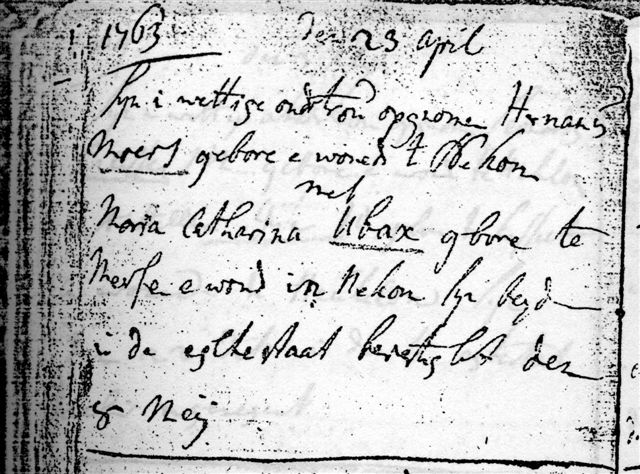 1763 den 23 april
syn i wettige ondtrou opgnomen Hermanus
Meers gebore e woned t Nekon
met
Maria Catharina Ubax gbore te
Merse e wond in Nekon syn beyd
i de eghtestaat bevestight den
8 Meij